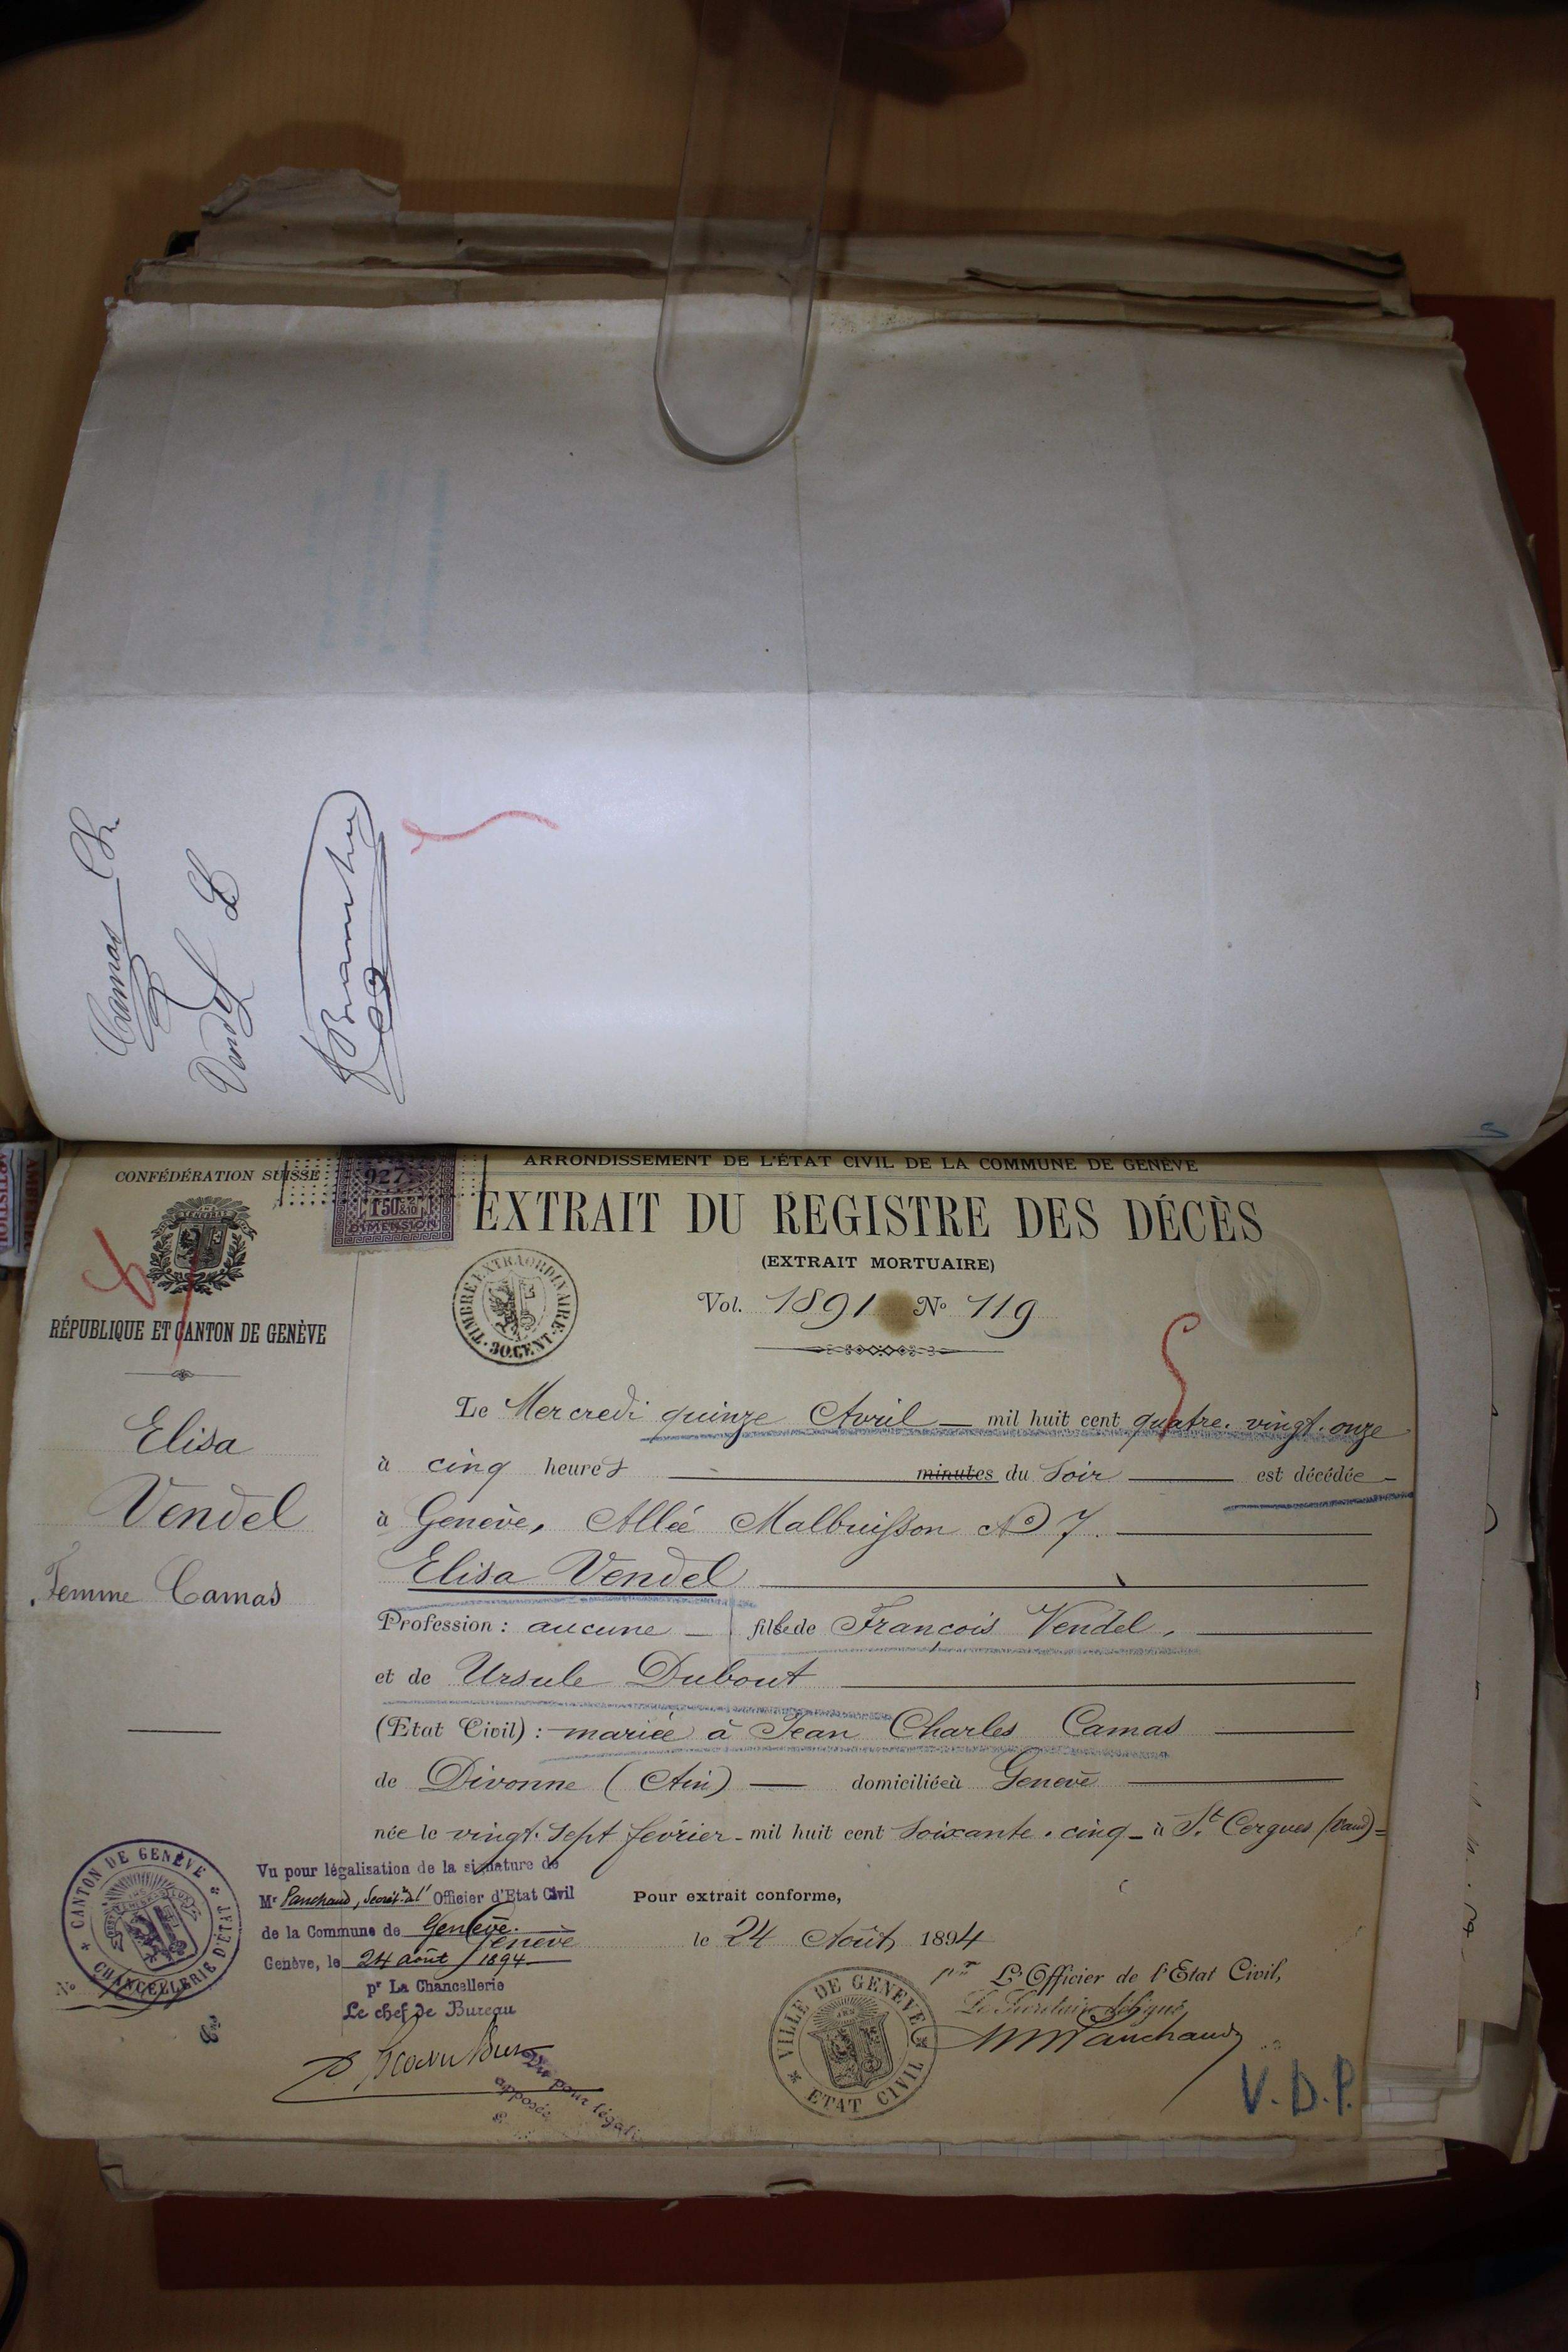 Camas Ch.
Vendel E
CONFÉDÉRATION SUISSE
RÉPUBLIQUE ET CANTON DE GENÈVE
Elisa
Vendel
Femme Camas
927
1F50 2/10
DIMENSION
ARRONDISSEMENT DE L'ÉTAT CIVIL DE LA COMMUNE DE GENÈVE
EXTRAIT DU REGISTRE DES DÉCÈS
(EXTRAIT MORTUAIRE)
TIMBRE EXTRAORDINAIRE 30.CENT.
Vol. 1891 No 119
Le Mercredi quinze Avril — mil huit cent quatre-vingt-onze
à cinq heures minutes du soir est décédée
à Genève, Allée Malbuisson No 7.
Elisa Vendel
Profession : aucune — fille de François Vendel,
et de Ursule Dubout
(Etat Civil) : mariée à Jean Charles Camas
de Divonne (Ain) — domiciliée à Genève
née le vingt-sept février - mil huit cent soixante-cinq - à St Cergues (Vaud) =
CANTON DE GENÈVE CHANCELLERIE D'ÉTAT
Vu pour légalisation de la signature de
Mr Panchaud, Secrét. de l' Officier d'Etat Civil
de la Commune de Genève.
Genève
Genève, le 24 août 1894
pr La Chancellerie
Le chef de Bureau
No
Vu pour légali
apposée
Pour extrait conforme,
le 24 Août 1894
pr L'Officier de l'Etat Civil,
Le Secrétaire délégué,
MPanchaud
VILLE DE GENÈVE ETAT CIVIL
V.D.P.